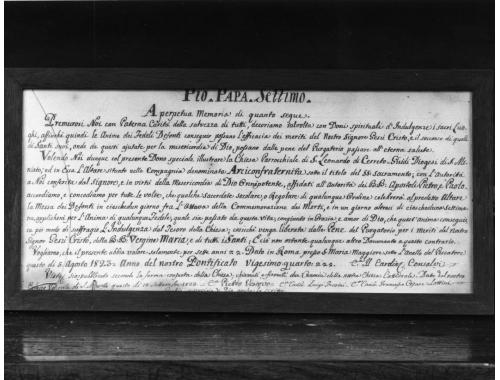 Pio. PAPA. Settimo.
A perpetua Memoria di quanto segue
Premurosi Noi con Paterna Carità della salvezza di tutti, decoriamo talvolta con Doni spirituali d'Indulgenze i sacri Luoghi, affinchè quindi le Anime dei Fedeli Defonti conseguir possano l'efficacia dei meriti del Nostro Signore Gesù Cristo, e il soccorso di quelli
di Santi suoi, onde da questi ajutate per la misericordia di Dio, possano dalle pene del Purgatorio passare all'eterna salute.
Volendo Noi dunque col presente Dono speciale, illustrare la Chiesa Parrochiale di S. Leonardo di Cerreto Guidi Diogesi di S. Miniato, ed in Essa l'Altare situato nella Compagnia denominata Arciconfraternita sotto il titolo del SS. Sacramento; con l'Autorità
a Noi conferita dal Signore, e in virtù della Misericordia di Dio Onnipotente, affidati all'autorità dei BB. Apostoli Pietro, e Paolo,
accordiamo, e concediamo per tutte le volte, che qualche Sacerdote secolare, o Regolare di qualunque Ordine celebrerà al predetto Altare
la Messa dei Defonti in ciaschedun giorno fra l'Ottava della Commemorazione dei Morti, e in un giorno
applicasi per l'Anima di qualunque Fedele, quale sia passato da questa vita, congiunto in Grazia, e amor di Dio, che quest'anima conseguisca
per modo di suffragio l'Indulgenza del Tesoro della Chiesa; cosichè venga liberata dalle Pene del Purgatorio per i Meriti del nostro
Signor Gesù Cristo, della B.B. Vergine Maria, e di tutti i Santi.
Vogliamo, che il presente abbia valore solamente per sette anni. Dato in Roma, presso S. Maria Maggiore sotto l'Anello del Pescatore
questo dì 5. Agosto 1823. Anno del nostro Pontificato Vigesimo quarto: 24. C. Il Cardin. Consalvi